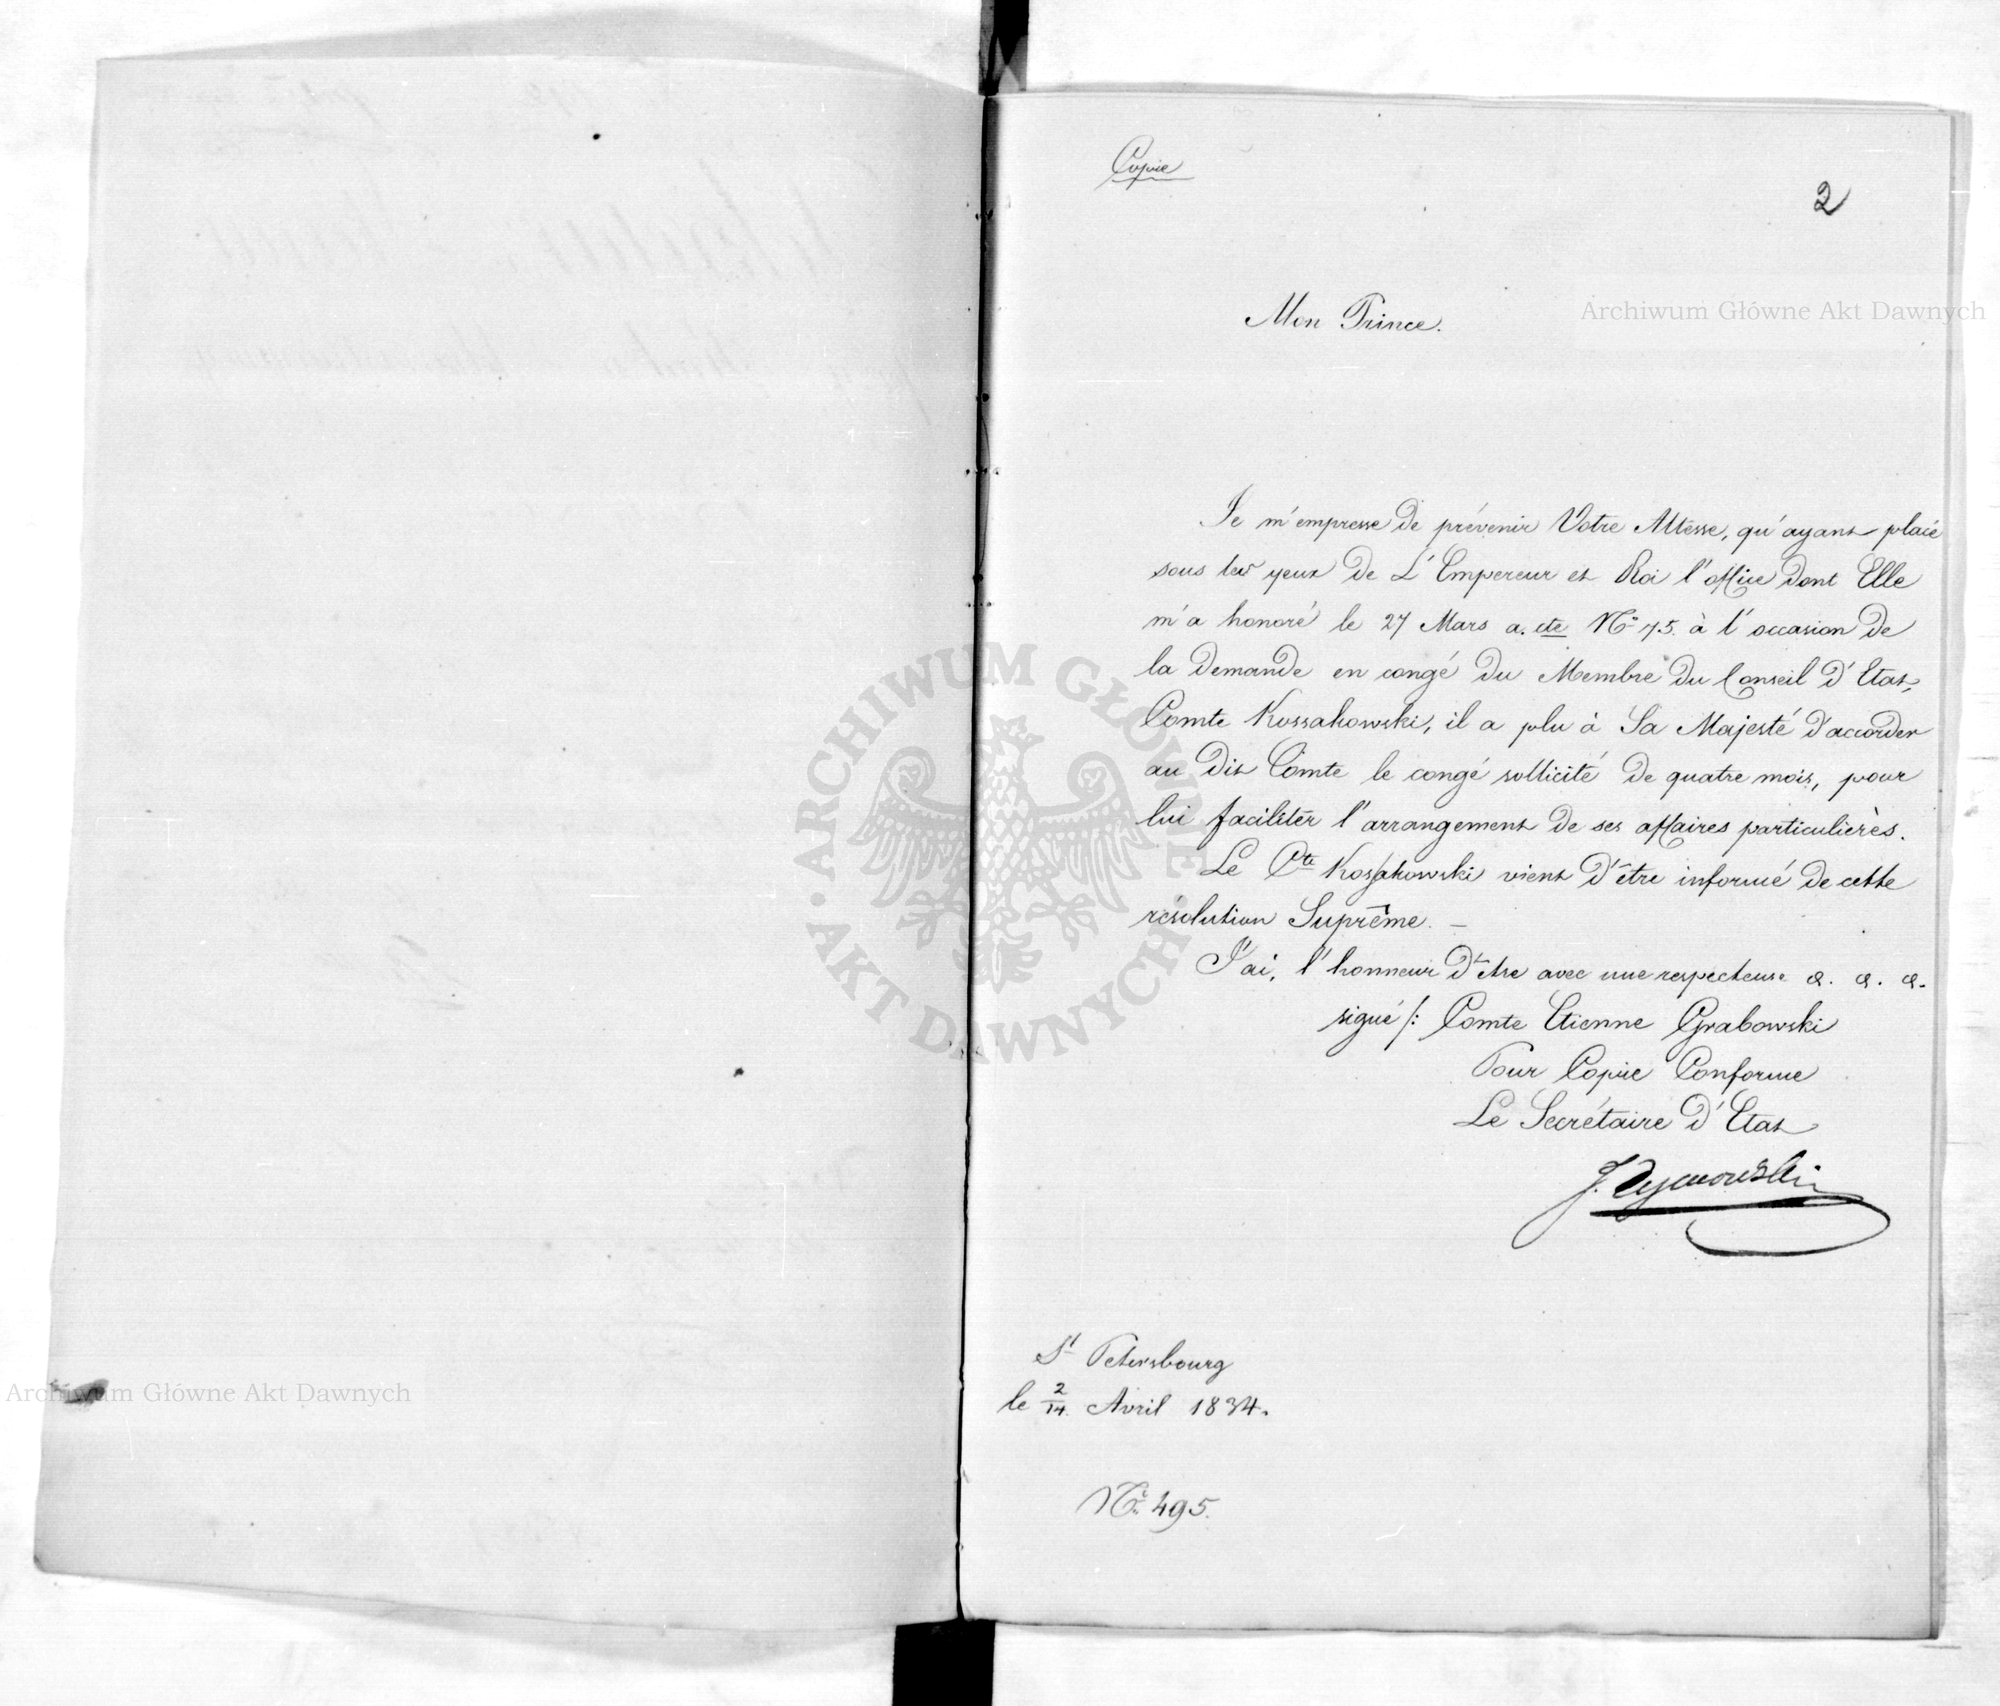 Copie
2
Mon Prince.
Je m'empresse de prévenir Votre Altesse, qu'ayant placé
sous les yeux de L'Empereur et Roi l'office dont Elle
m'a honoré le 27 Mars a. cte No 75. à l'occasion de
la demande en congé du Membre du Conseil d'Etat,
Comte Kossakowski, il a plu à Sa Majesté d'accorder
au dit Comte le congé sollicité de quatre mois, pour
lui facilitér l'arrangement de ses affaires particulières.
Le Cte Kossakowski vient d'être informé de cette
résolution Suprême. —
J'ai, l'honneur d'être avec une respecteuse &. &. &.
signé /: Comte Etienne Grabowski
Pour Copie Conforme
Le Secrétaire d'Etat
J. Tymowski
St Petersbourg
le 2/14. Avril 1834.
No 495.
Archiwum Główne Akt Dawnych
Archiwum Główne Akt Dawnych
ARCHIWUM GŁÓWNE · AKT DAWNYCH ·